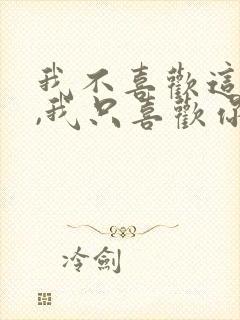 我不喜歡這
,我只喜歡你
冷劍